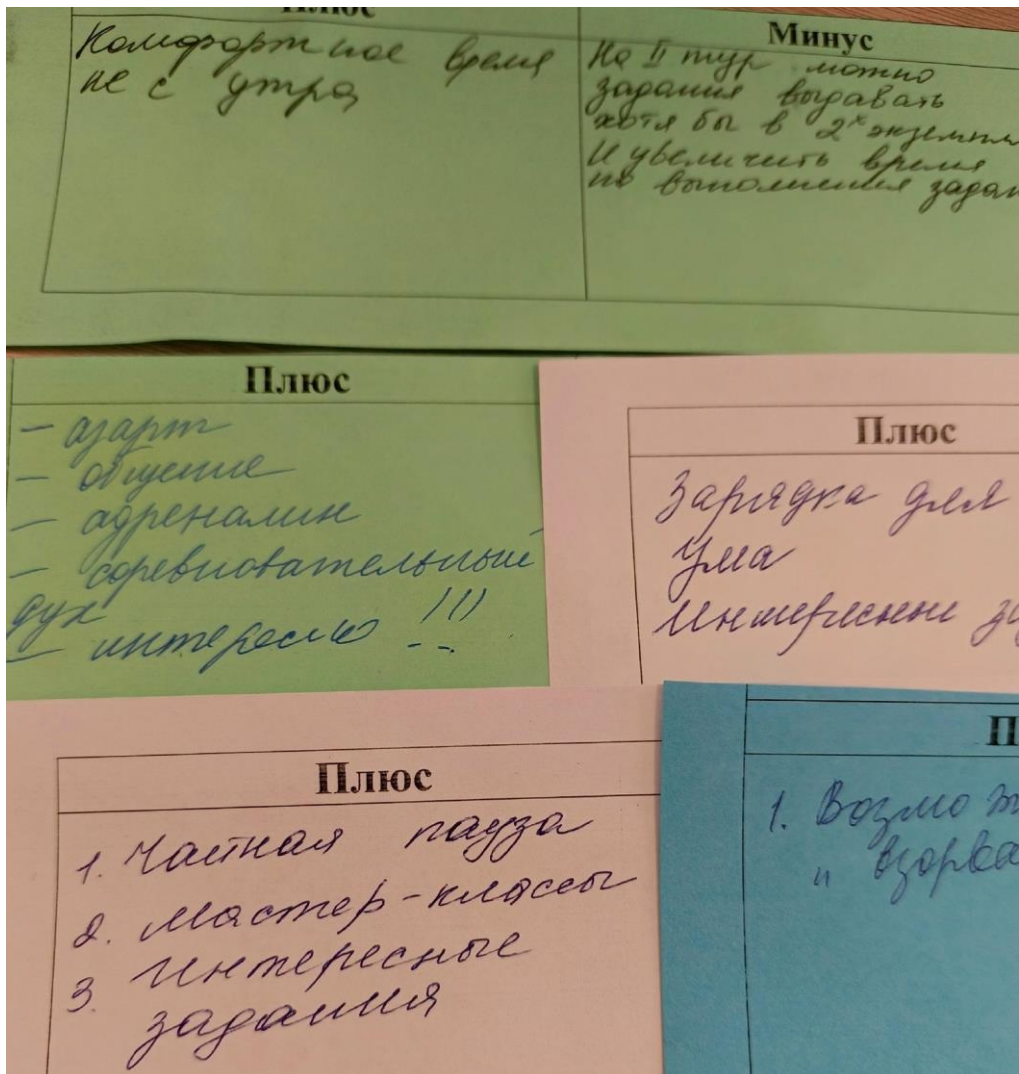 Плюс
Комфортное время
не с утра
Минус
На II тур можно
задания выдавать
хотя бы в 2х экземпля
И увеличить время
по выполнения задан
Плюс
- азарт
- общение
- адреналин
- соревновательный
дух
- интересно !!!
Плюс
Зарядка для
ума
Интересные за
Плюс
1. Чайная пауза
2. Мастер-классы
3. Интересные
задания
П
1. Возмож
"взорва